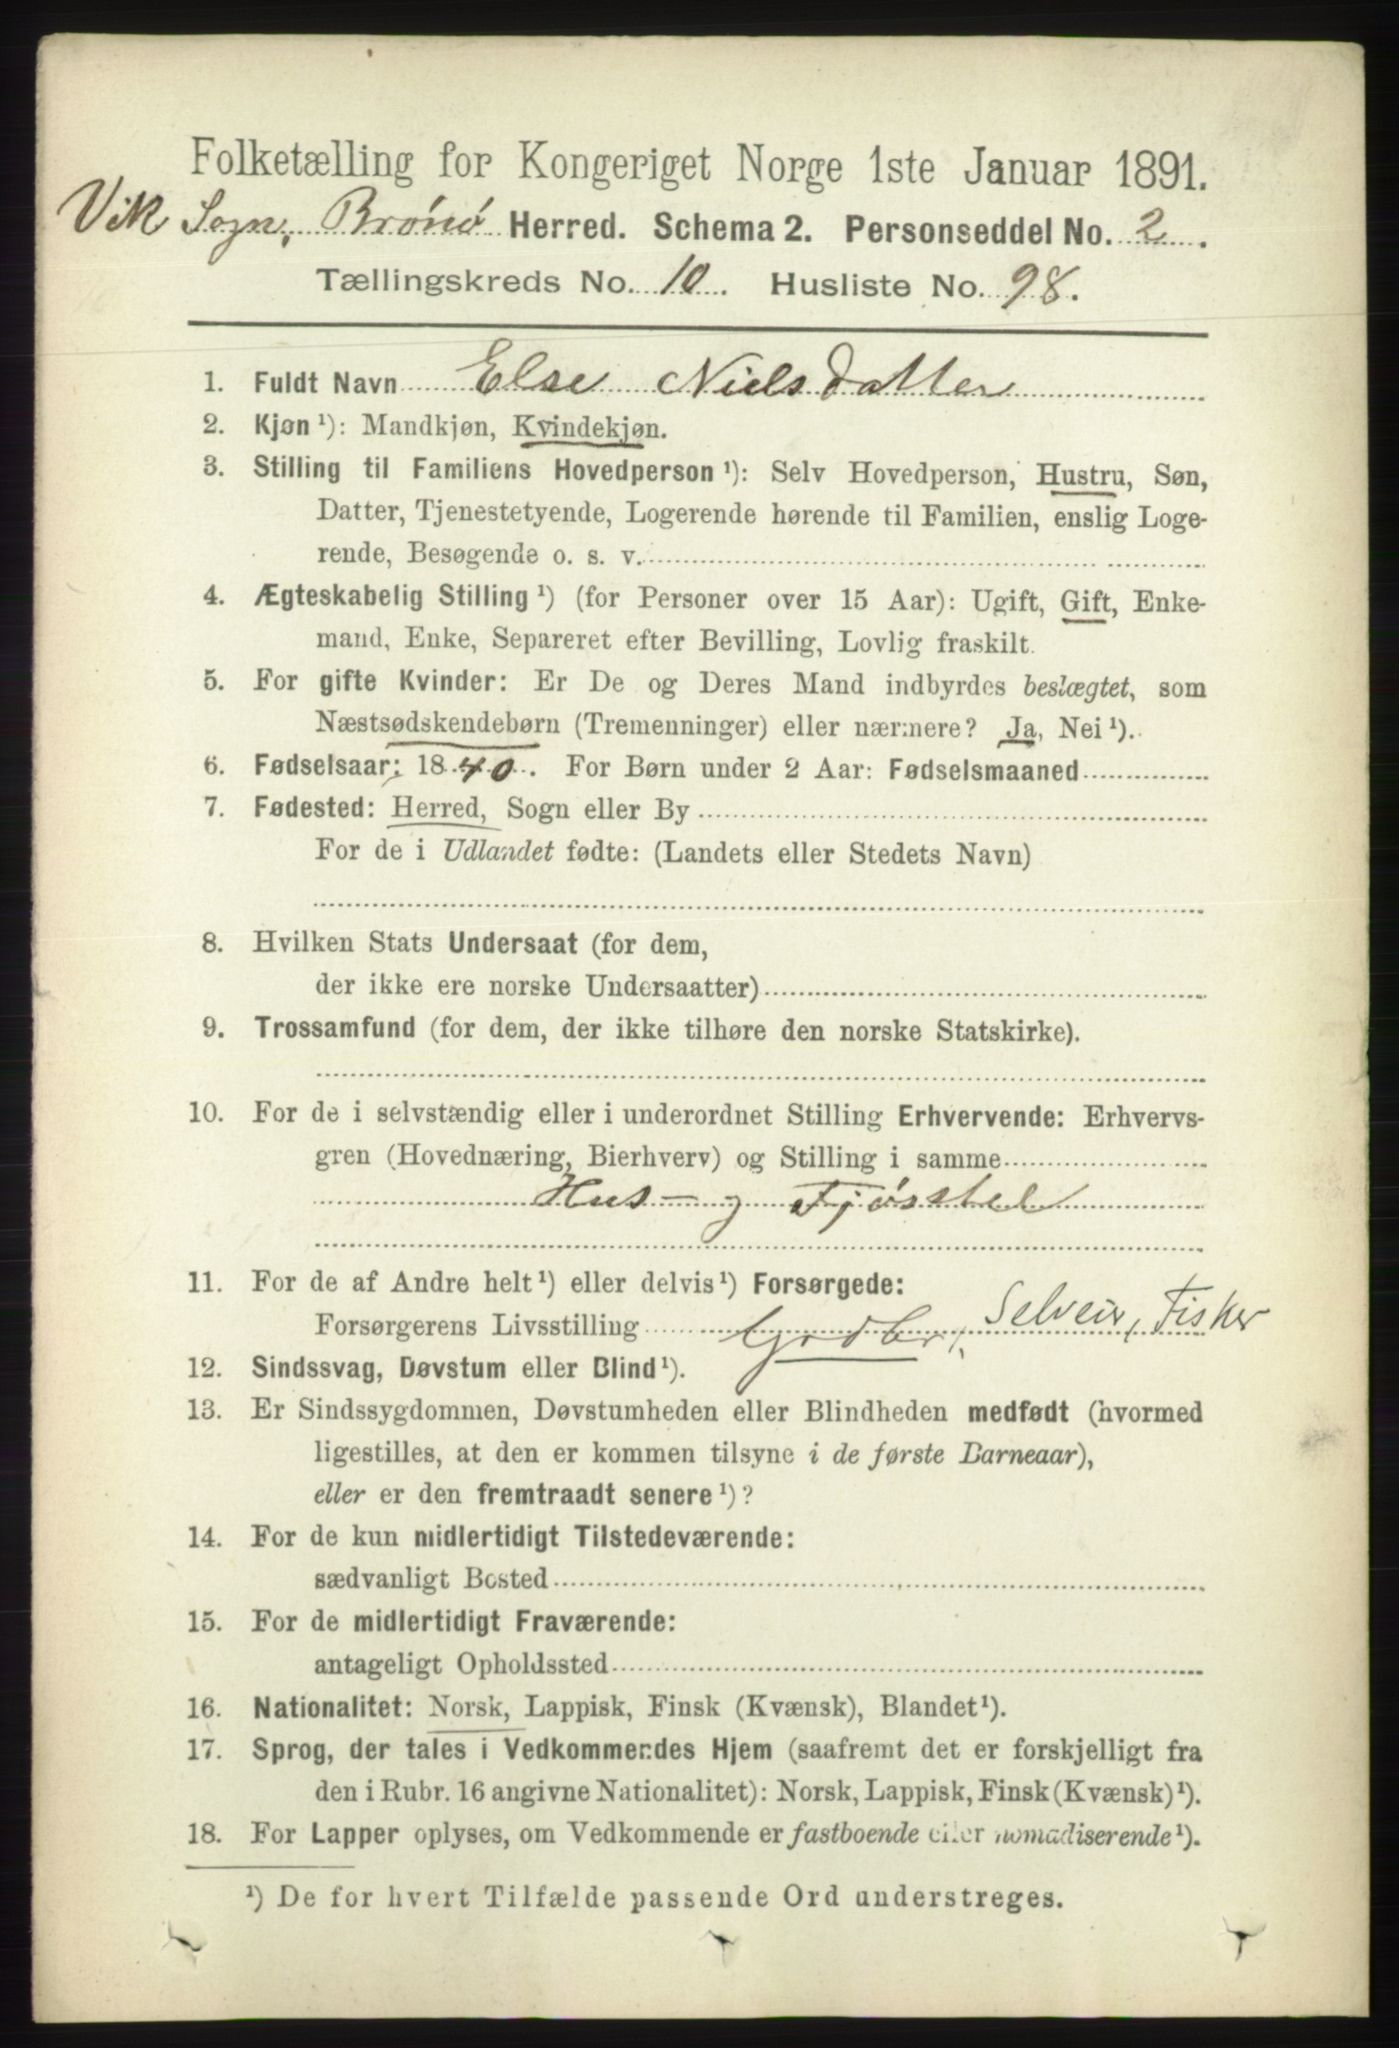 Folketælling for Kongeriget Norge 1ste Januar 1891.
Vik Sogn, Brønø Herred. Schema 2. Personseddel No. 2.
Tællingskreds No. 10. Husliste No. 98.
1. Fuldt Navn Else Nielsdatter
2. Kjøn ¹): Mandkjøn, Kvindekjøn.
3. Stilling til Familiens Hovedperson ¹): Selv Hovedperson, Hustru, Søn,
Datter, Tjenestetyende, Logerende hørende til Familien, enslig Loge-
rende, Besøgende o. s. v.
4. Ægteskabelig Stilling ¹) (for Personer over 15 Aar): Ugift, Gift, Enke-
mand, Enke, Separeret efter Bevilling, Lovlig fraskilt.
5. For gifte Kvinder: Er De og Deres Mand indbyrdes beslægtet, som
Næstsødskendebørn (Tremenninger) eller nærmere? Ja, Nei ¹).
6. Fødselsaar: 1840. For Børn under 2 Aar: Fødselsmaaned
7. Fødested: Herred, Sogn eller By
For de i Udlandet fødte: (Landets eller Stedets Navn)
8. Hvilken Stats Undersaat (for dem,
der ikke ere norske Undersaatter)
9. Trossamfund (for dem, der ikke tilhøre den norske Statskirke).
10. For de i selvstændig eller i underordnet Stilling Erhvervende: Erhvervs-
gren (Hovednæring, Bierhverv) og Stilling i samme
Hus- og Fjøsstel
11. For de af Andre helt ¹) eller delvis ¹) Forsørgede:
Forsørgerens Livsstilling Grdbr, Selveier, Fisker
12. Sindssvag, Døvstum eller Blind ¹).
13. Er Sindssygdommen, Døvstumheden eller Blindheden medfødt (hvormed
ligestilles, at den er kommen tilsyne i de første Barneaar),
eller er den fremtraadt senere ¹)?
14. For de kun midlertidigt Tilstedeværende:
sædvanligt Bosted
15. For de midlertidigt Fraværende:
antageligt Opholdssted
16. Nationalitet: Norsk, Lappisk, Finsk (Kvænsk), Blandet ¹).
17. Sprog, der tales i Vedkommendes Hjem (saafremt det er forskjelligt fra
den i Rubr. 16 angivne Nationalitet): Norsk, Lappisk, Finsk (Kvænsk) ¹).
18. For Lapper oplyses, om Vedkommende er fastboende eller nomadiserende ¹).
¹) De for hvert Tilfælde passende Ord understreges.